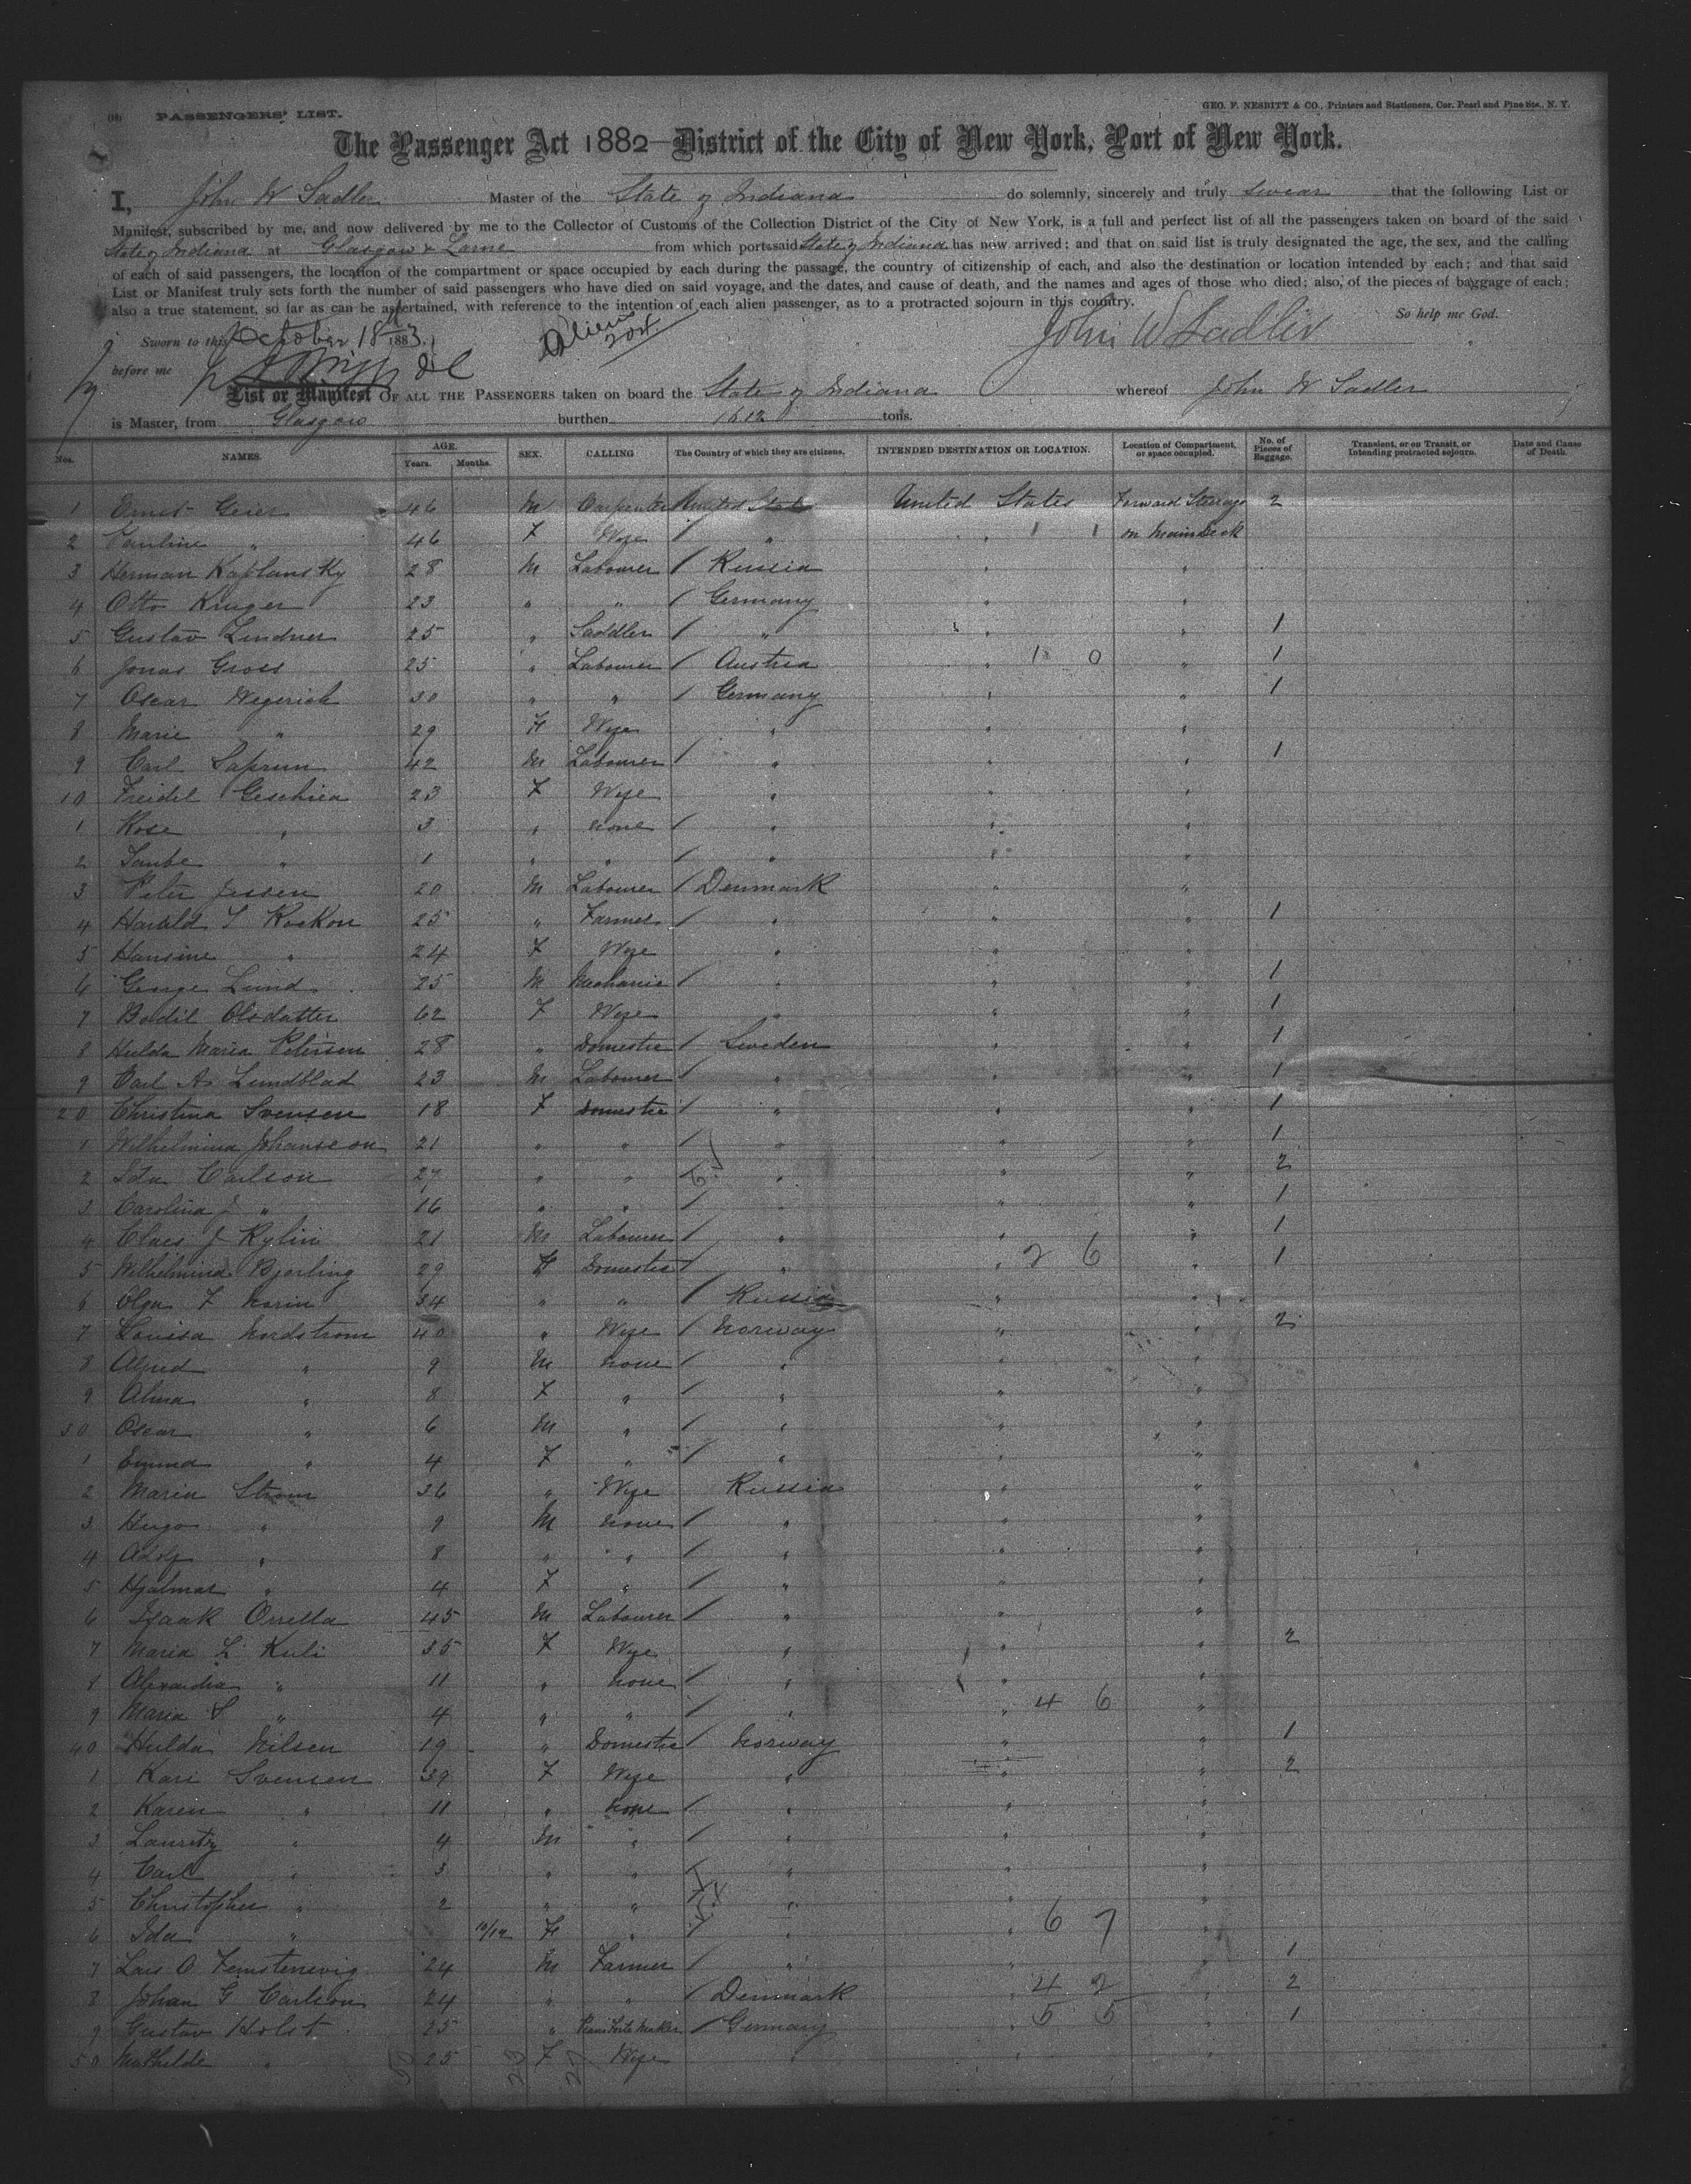 PASSENGERS' LIST.
GEO. F. NESBITT & CO., Printers and Stationers, Cor. Pearl and Pine Sts., N. Y.
The Passenger Act 1882—District of the City of New York, Port of New York.
I, John W Sadler Master of the State of Indiana do solemnly, sincerely and truly swear that the following List or
Manifest, subscribed by me, and now delivered by me to the Collector of Customs of the Collection District of the City of New York, is a full and perfect list of all the passengers taken on board of the said
State of Indiana at Glasgow & Larne from which ports said State of Indiana has now arrived; and that on said list is truly designated the age, the sex, and the calling
of each of said passengers, the location of the compartment or space occupied by each during the passage, the country of citizenship of each, and also the destination or location intended by each; and that said
List or Manifest truly sets forth the number of said passengers who have died on said voyage, and the dates, and cause of death, and the names and ages of those who died; also, of the pieces of baggage of each;
also a true statement, so far as can be ascertained, with reference to the intention of each alien passenger, as to a protracted sojourn in this country. So help me God.
Sworn to this October 18th 1883. Aliens John W Sadler
before me
List or Manifest OF ALL THE PASSENGERS taken on board the State of Indiana whereof John W Sadler
is Master, from Glasgow burthen 1612 tons.
Nos. NAMES. AGE. Years. Months. SEX. CALLING The Country of which they are citizens. INTENDED DESTINATION OR LOCATION. Location of Compartment, or space occupied. No. of Pieces of Baggage. Transient, or on Transit, or Intending protracted sojourn. Date and Cause of Death.
1 Ernst Geier 46 M Carpenter United States United States Forward Steerage 2
2 Pauline " 46 F Wife / " " 1 1 on Main Deck
3 Herman Kaplansky 28 M Labourer / Russia " "
4 Otto Kruger 23 " " / Germany " "
5 Gustav Lindner 25 " Saddler / " " " 1
6 Jonas Gross 25 " Labourer / Austria " 1 0 " 1
7 Oscar Wegerich 30 " " / Germany " " 1
8 Marie " 29 F Wife " " "
9 Carl Saprun 42 M Labourer / " " " 1
10 Freidel Geschica 23 F Wife " " "
1 Rose " 3 " none / " " "
2 Taube " 1 " " / " " "
3 Peter Jessen 20 M Labourer / Denmark " "
4 Harald S Rockon 25 " Farmer / " " " 1
5 Hansine " 24 F Wife " " "
6 George Lund 25 M Mechanic / " " " 1
7 Bodil Olsdatter 62 F Wife " " " 1
8 Hulda Maria Petersen 28 " Domestic / Sweden " " 1
9 Carl A. Lundblad 23 M Labourer / " " " 1
20 Christina Svensen 18 F Domestic / " " " 1
1 Wilhelmina Johansson 21 " " / " " " 1
2 Ida Carlson 27 " " " " " 2
3 Carolina J " 16 " " / " " " 1
4 Claes J Rylin 21 M Labourer / " " " 1
5 Wilhelmina Bjorling 29 F Domestic / " " 2 6 " 1
6 Olga F Norin 34 " " / Russia " "
7 Louisa Nordstrom 40 " Wife / Norway " " 2
8 Alfred " 9 M none / " " "
9 Alma " 8 F " / " " "
30 Oscar " 6 M " / " " "
1 Emma " 4 F " / " " "
2 Maria Strom 36 " Wife Russia " "
3 Hugo " 9 M none / " " "
4 Adolf " 8 " " / " " "
5 Hjalmar " 4 F " / " " "
6 Isaak Orrella 45 M Labourer / " " "
7 Maria L Kuli 35 F Wife " " " 2
8 Alexandra " 11 " none / " " "
9 Maria S " 4 " " / " " 4 6 "
40 Hulda Nilsen 19 " Domestic / Norway " " 1
1 Kari Svensen 39 F Wife " " " 2
2 Karen " 11 " none / " " "
3 Lauretz " 4 M " / " " "
4 Carl " 3 " " / " " "
5 Christopher " 2 " " / " " "
6 Ida " 10/12 F " / " " 6 7 "
7 Lars O 24 M Farmer / " " " 1
8 Johan G Carlson 24 " " / Denmark " 4 2 " 2
9 Gustav Holst 25 " Piano Forte Maker / Germany " 5 5 " 1
50 Mathilde " 25 F Wife " " "